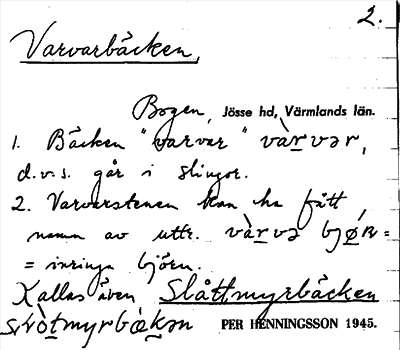 2.
Varvarbäcken,
Bogen, Jösse hd, Värmlands län.
1. Bäcken "varvar" vàr̲vər,
d.v.s. går i slingor.
2. Varvarstenen kan ha fått
namn av uttr. vàr̲və bjǿɴ=
= inringa björn.
Kallas även Slåttmyrbäcken
PER HENNINGSSON 1945.